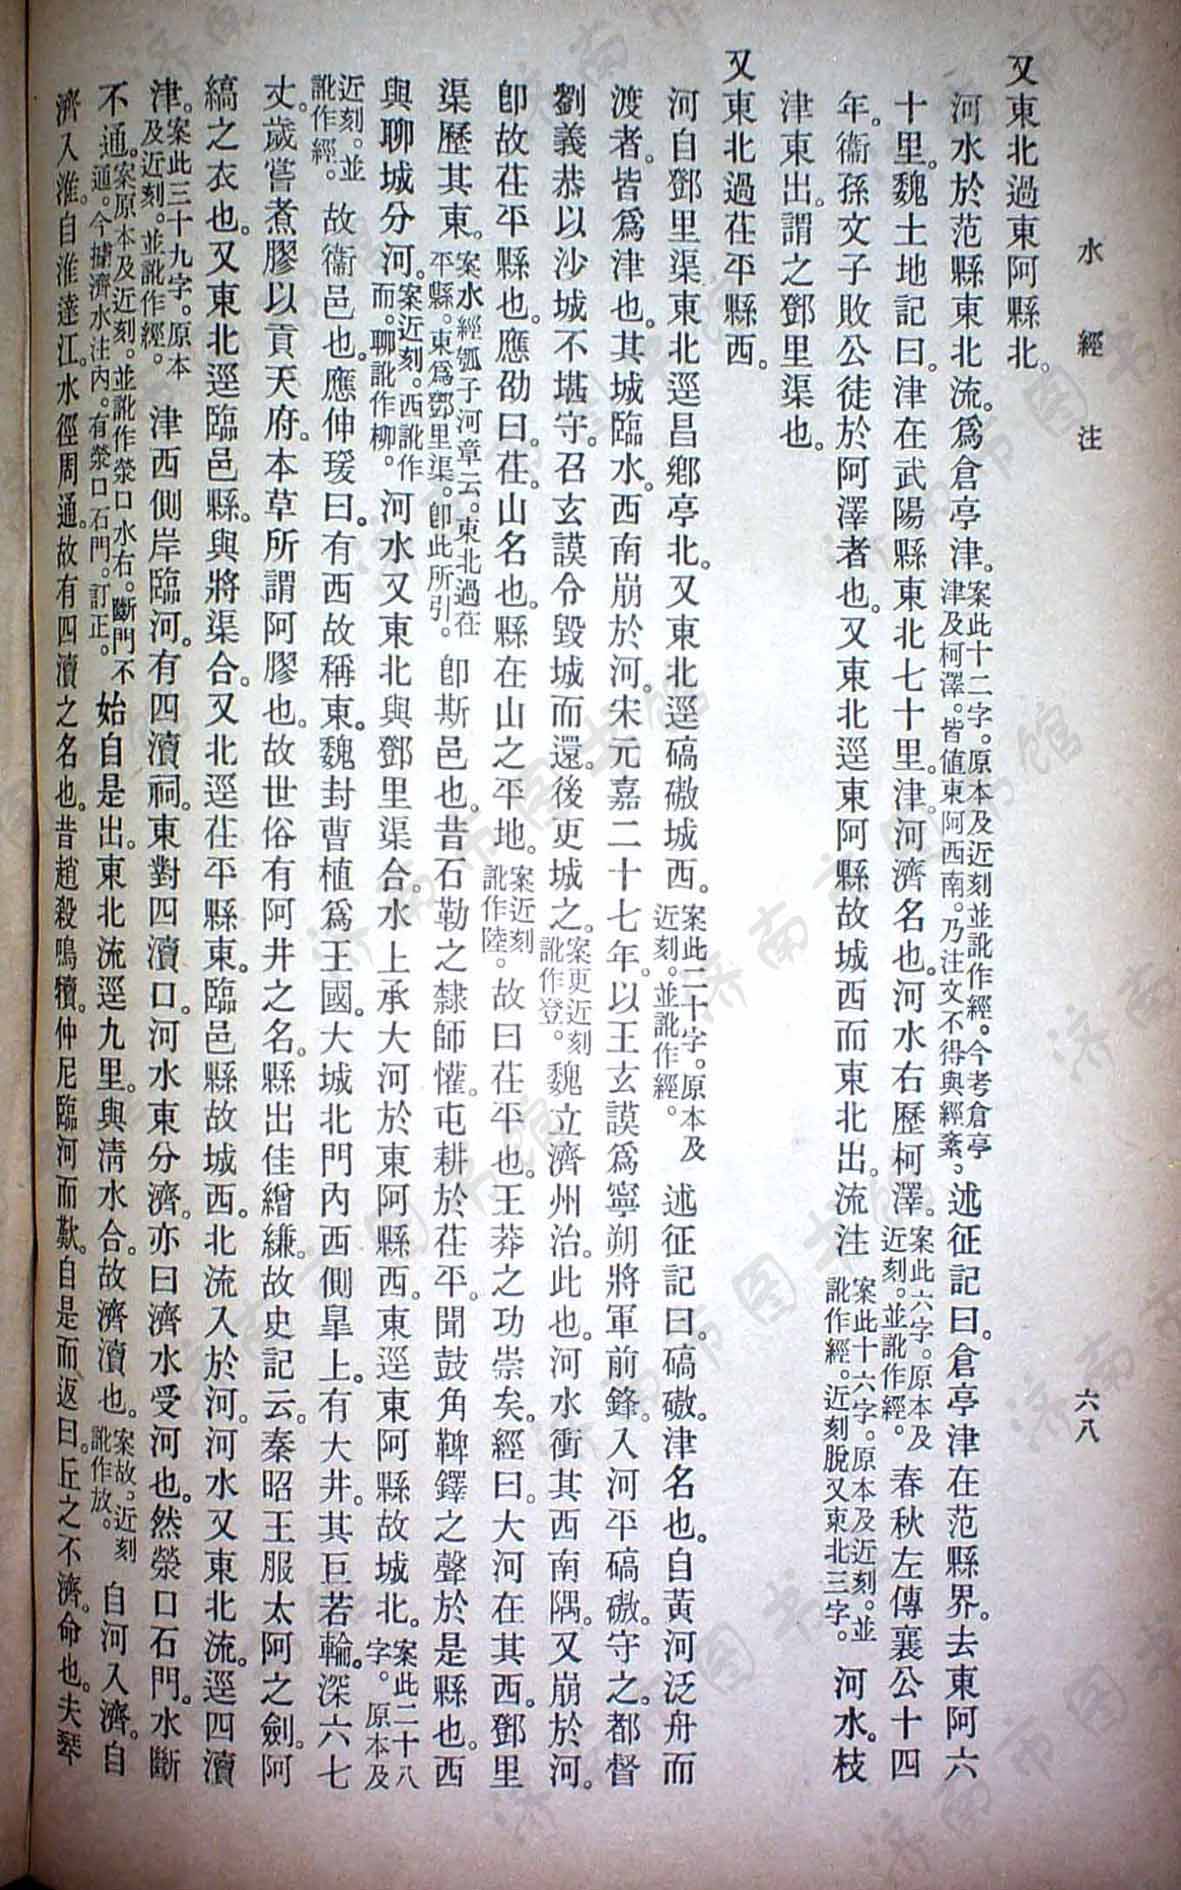 水經注
六八
又東北過東阿縣北。
河水於范縣東北流。爲倉亭津。案此十二字。原本及近刻並訛作經。今考倉亭津及柯澤。皆值東阿西南。乃注文不得與經紊。述征記曰。倉亭津在范縣界。去東阿六
十里。魏土地記曰。津在武陽縣東北七十里。津。河濟名也。河水右歷柯澤。案此六字。原本及近刻。並訛作經。春秋左傳襄公十四
年。衞孫文子敗公徒於阿澤者也。又東北逕東阿縣故城西而東北出。流注案此十六字。原本及近刻。並訛作經。近刻脫又東北三字。河水。枝
津東出。謂之鄧里渠也。
又東北過茌平縣西。
河自鄧里渠東北逕昌鄉亭北。又東北逕碻磝城西。案此二十字。原本及近刻。並訛作經。述征記曰。碻磝。津名也。自黃河泛舟而
渡者。皆爲津也。其城臨水。西南崩於河。宋元嘉二十七年。以王玄謨爲寧朔將軍前鋒。入河平碻磝。守之。都督
劉義恭以沙城不堪守。召玄謨令毀城而還。後更城之。案更近刻訛作登。魏立濟州治。此也。河水衝其西南隅。又崩於河。
卽故茌平縣也。應劭曰。茌。山名也。縣在山之平地。案近刻訛作陸。故曰茌平也。王莽之功崇矣。經曰。大河在其西。鄧里
渠歷其東。案水經瓠子河章云。東北過茌平縣。東爲鄧里渠。卽此所引。卽斯邑也。昔石勒之隸師懽。屯耕於茌平。聞鼓角鞞鐸之聲於是縣也。西
與聊城分河。案近刻。西訛作而。聊訛作柳。河水又東北與鄧里渠合。水上承大河於東阿縣西。東逕東阿縣故城北。案此二十八字。原本及
近刻。並訛作經。故衞邑也。應仲瑗曰。有西故稱東。魏封曹植爲王國。大城北門內西側皐上。有大井。其巨若輪。深六七
丈。歲嘗煮膠以貢天府。本草所謂阿膠也。故世俗有阿井之名。縣出佳繒縑。故史記云。秦昭王服太阿之劍。阿
縞之衣也。又東北逕臨邑縣。與將渠合。又北逕茌平縣東。臨邑縣故城西。北流入於河。河水又東北流。逕四瀆
津。案此三十九字。原本及近刻。並訛作經。津西側岸臨河。有四瀆祠。東對四瀆口。河水東分濟。亦曰濟水受河也。然滎口石門。水斷
不通。案原本及近刻。並訛作滎口水右。斷門不通。今據濟水注內。有滎口石門。訂正。始自是出。東北流逕九里。與清水合。故濟瀆也。案故。近刻訛作放。自河入濟。自
濟入淮。自淮達江。水徑周通。故有四瀆之名也。昔趙殺鳴犢。仲尼臨河而歎。自是而返曰。丘之不濟。命也。夫琴